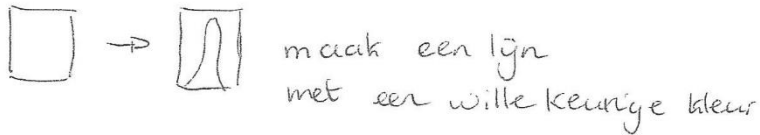 maak een lijn
met een willekeurige kleur